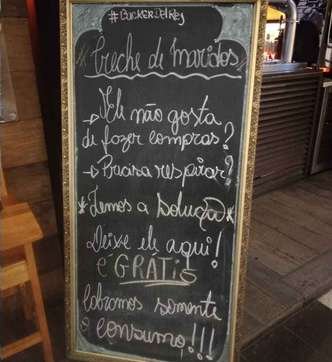 #BUCKERDELREY
"Creche de Maridos"
→ Ele não gosta
de fazer compras?
→ Precisa respirar?
*Temos a Solução*
Deixe ele aqui!
é GRÁTIS
Cobramos somente
o consumo!!!